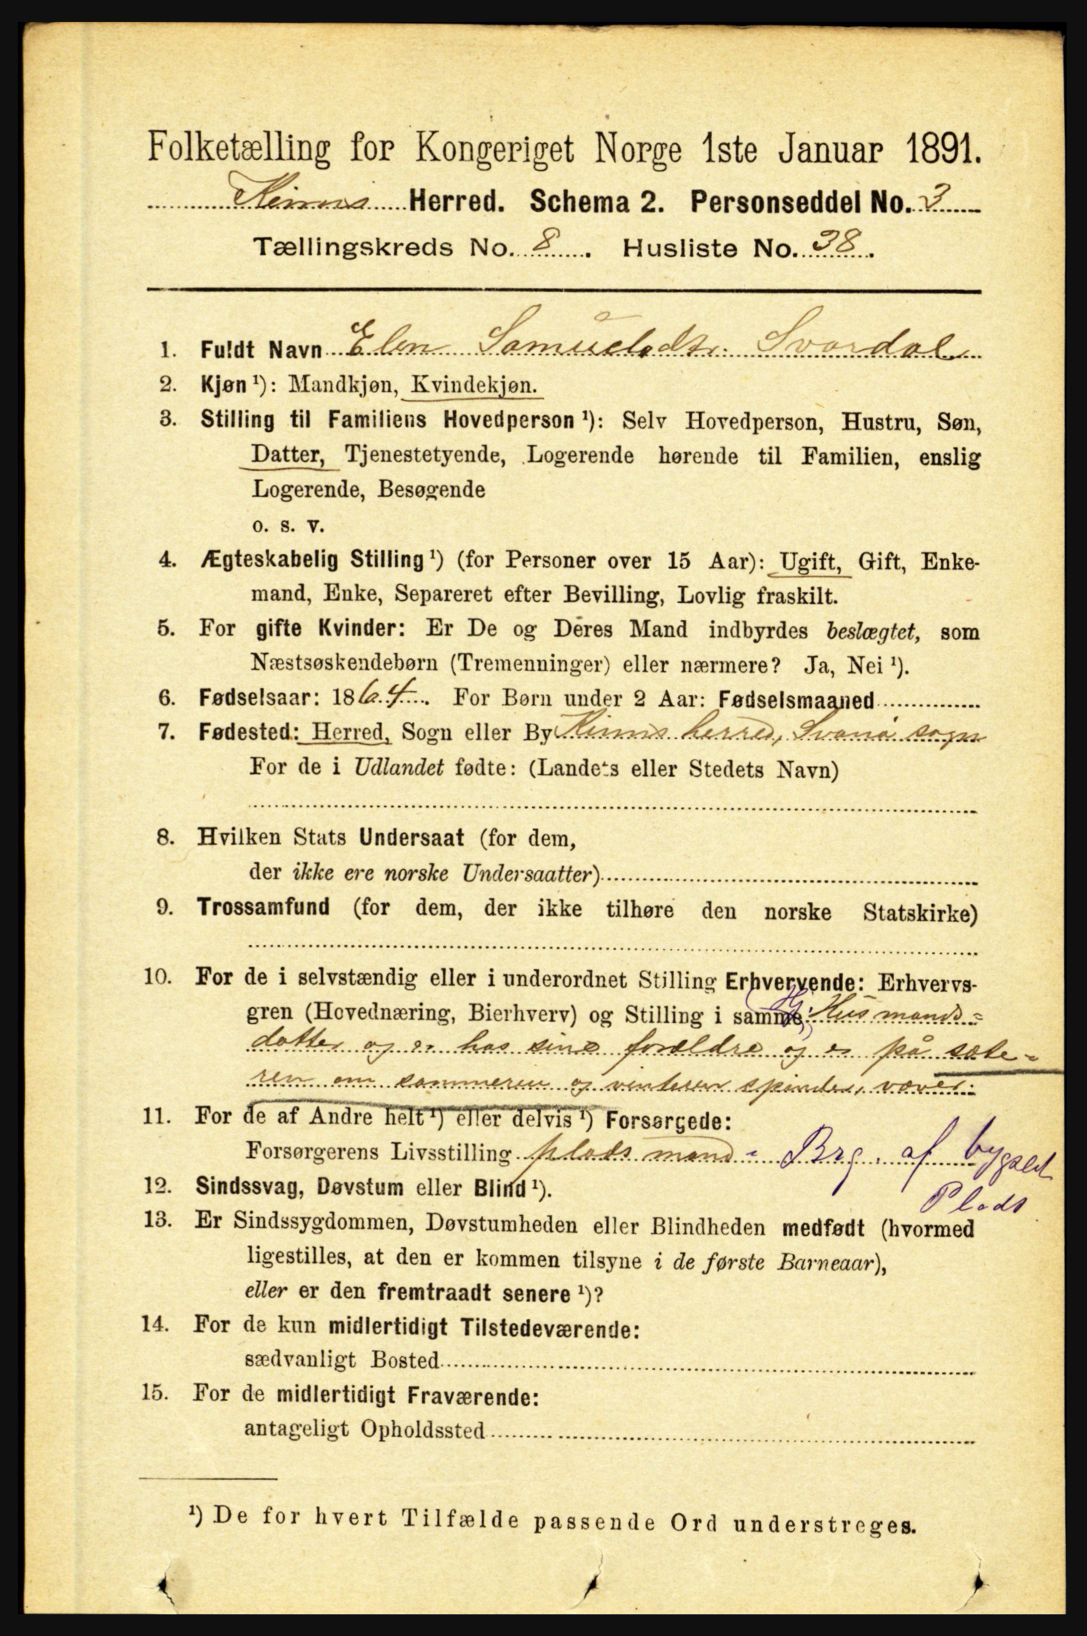 Folketælling for Kongeriget Norge 1ste Januar 1891.
Kinns Herred. Schema 2. Personseddel No. 3
Tællingskreds No. 8. Husliste No. 38.
1. Fuldt Navn Elen Samuelsdtr. Svardal
2. Kjøn ¹): Mandkjøn, Kvindekjøn.
3. Stilling til Familiens Hovedperson ¹): Selv Hovedperson, Hustru, Søn,
Datter, Tjenestetyende, Logerende hørende til Familien, enslig
Logerende, Besøgende
o. s. v.
4. Ægteskabelig Stilling ¹) (for Personer over 15 Aar): Ugift, Gift, Enke-
mand, Enke, Separeret efter Bevilling, Lovlig fraskilt.
5. For gifte Kvinder: Er De og Deres Mand indbyrdes beslægtet, som
Næstsøskendebørn (Tremenninger) eller nærmere? Ja, Nei ¹).
6. Fødselsaar: 1864. For Børn under 2 Aar: Fødselsmaaned
7. Fødested: Herred, Sogn eller By Kinns herred, Svanø sogn
For de i Udlandet fødte: (Landets eller Stedets Navn)
8. Hvilken Stats Undersaat (for dem,
der ikke ere norske Undersaatter)
9. Trossamfund (for dem, der ikke tilhøre den norske Statskirke)
10. For de i selvstændig eller i underordnet Stilling Erhvervende: Erhvervs-
gren (Hovednæring, Bierhverv) og Stilling i samme: Husmands=
datter og er hos sine forældre og er på sæte=
ren om sommeren og vinteren spinder, væver.
11. For de af Andre helt ¹) eller delvis ¹) Forsørgede:
Forsørgerens Livsstilling pladsmand - Brg. af bygslet
Plads
12. Sindssvag, Døvstum eller Blind ¹).
13. Er Sindssygdommen, Døvstumheden eller Blindheden medfødt (hvormed
ligestilles, at den er kommen tilsyne i de første Barneaar),
eller er den fremtraadt senere ¹)?
14. For de kun midlertidigt Tilstedeværende:
sædvanligt Bosted
15. For de midlertidigt Fraværende:
antageligt Opholdssted
¹) De for hvert Tilfælde passende Ord understreges.